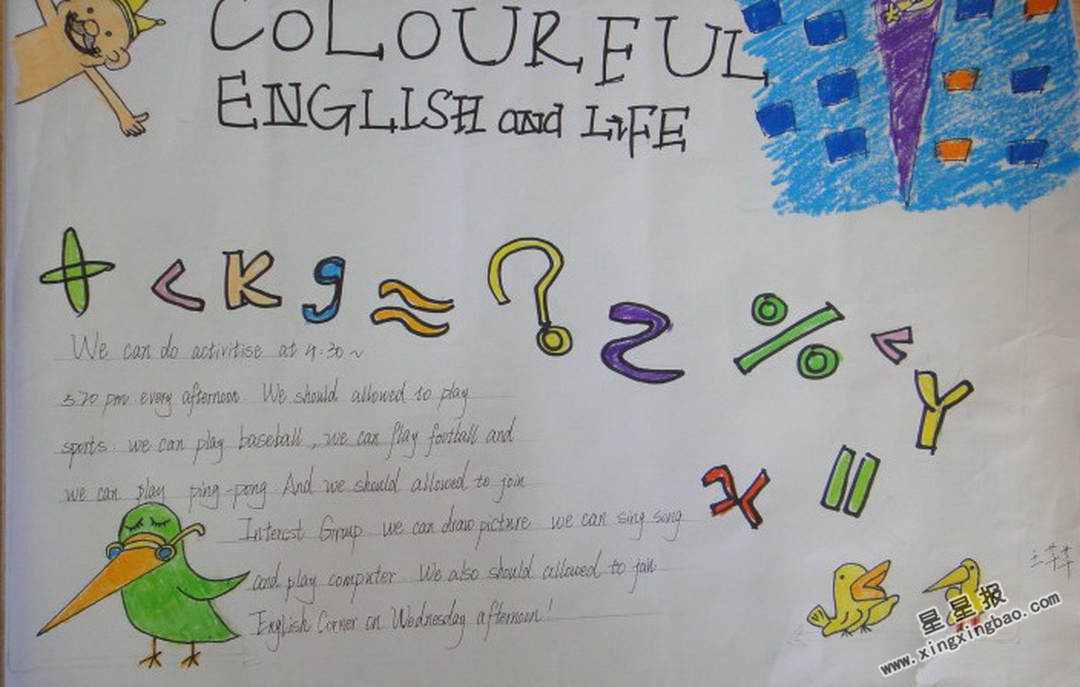 COLOURFUL
ENGLISH and LiFE
+ < K g ≈ ? Z % < Y
x =
We can do activitise at 4:30 ~
5.20 pm every afternoon. We should allowed to play
sports: we can play baseball, we can play football and
we can play ping-pong And we should allowed to join
Interest Group we can draw picture we can sing song
and play computer We also should allowed to join
English Corner on Wednesday afternoon!
星星报
www.xingxingbao.com